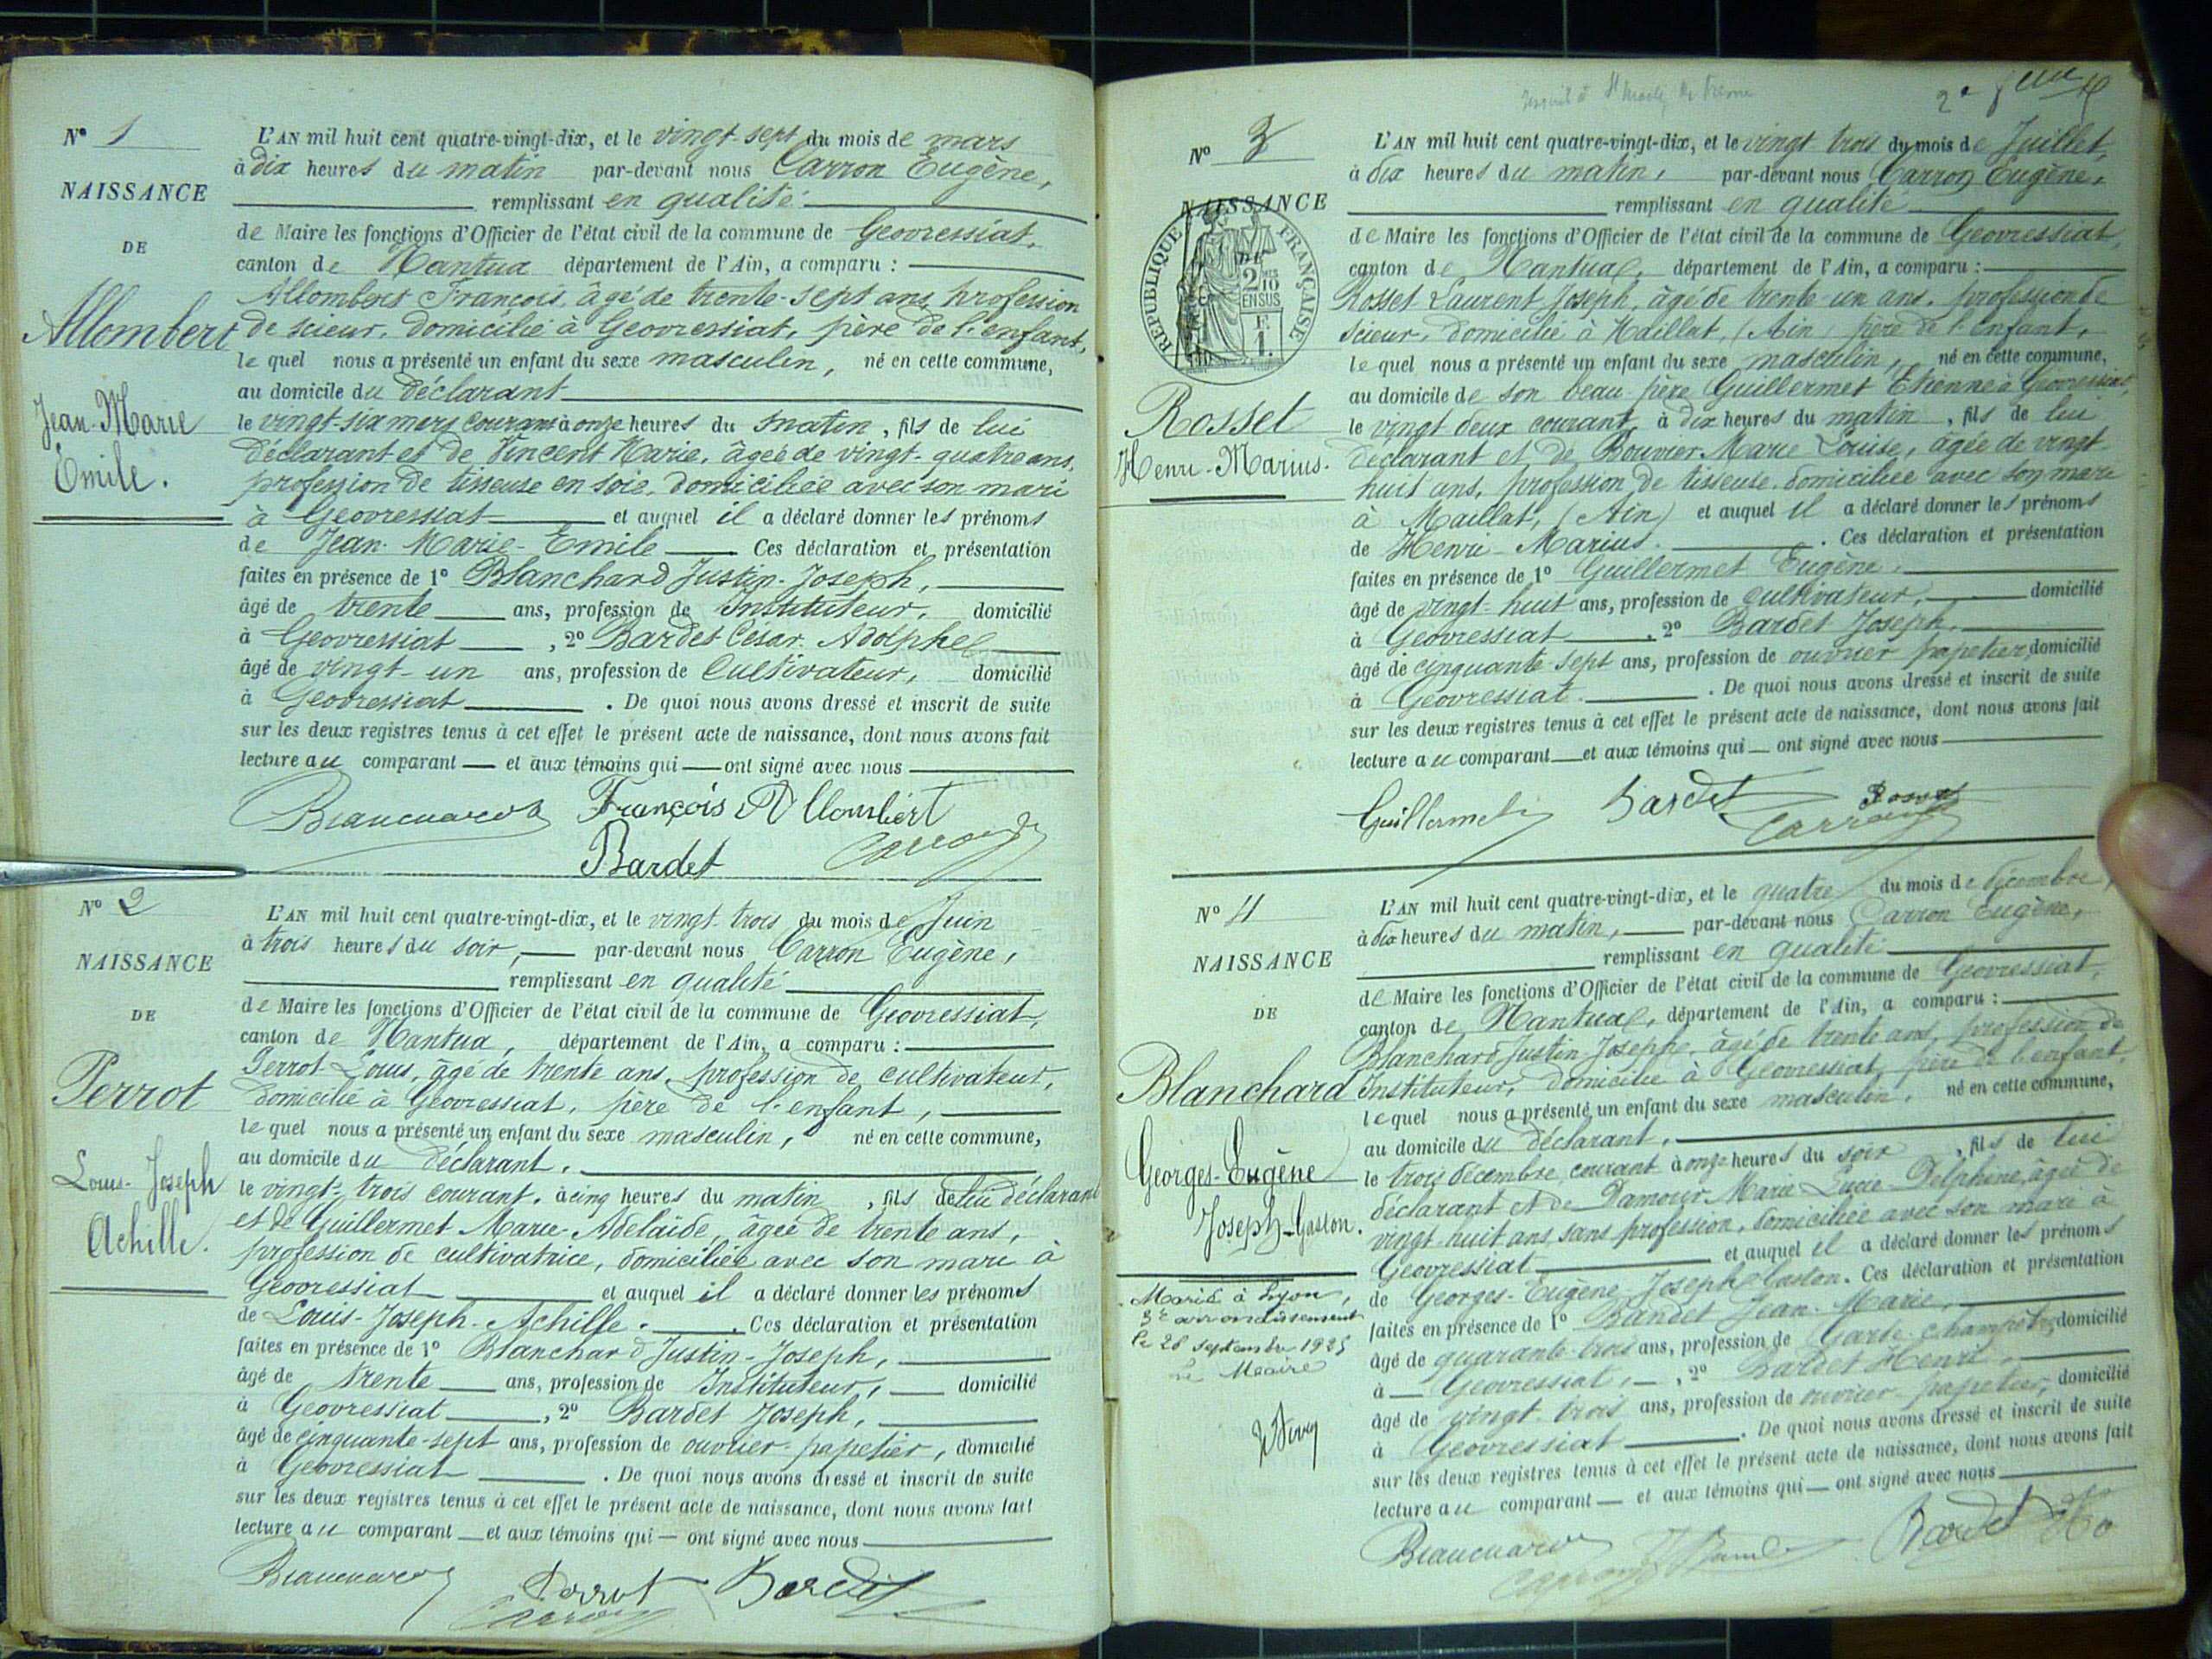 N° 1
NAISSANCE
DE
Allombert
Jean-Marie
Emile.
L'AN mil huit cent quatre-vingt-dix, et le vingt-sept du mois de mars
à dix heures du matin par-devant nous Carron Eugène,
remplissant en qualité
de Maire les fonctions d'Officier de l'état civil de la commune de Geovressiat,
canton de Nantua département de l'Ain, a comparu :
Allombert François, âgé de trente-sept ans, profession
de scieur, domicilié à Geovressiat, père de l'enfant,
lequel nous a présenté un enfant du sexe masculin, né en cette commune,
au domicile du déclarant
le vingt-six mars courant à onze heures du matin, fils de lui
déclarant et de Vincent Marie, âgée de vingt-quatre ans,
profession de tisseuse en soie, domiciliée avec son mari
à Geovressiat et auquel il a déclaré donner les prénoms
de Jean-Marie-Emile Ces déclaration et présentation
faites en présence de 1° Blanchard Justin-Joseph,
âgé de trente ans, profession de Instituteur, domicilié
à Geovressiat, 2° Bardet César-Adolphe
âgé de vingt-un ans, profession de Cultivateur, domicilié
à Geovressiat. De quoi nous avons dressé et inscrit de suite
sur les deux registres tenus à cet effet le présent acte de naissance, dont nous avons fait
lecture au comparant et aux témoins qui ont signé avec nous
Blanchard François Allombert
Bardet Carron
N° 2
NAISSANCE
DE
Perrot
Louis-Joseph
Achille.
L'AN mil huit cent quatre-vingt-dix, et le vingt-trois du mois de Juin
à trois heures du soir, par-devant nous Carron Eugène,
remplissant en qualité
de Maire les fonctions d'Officier de l'état civil de la commune de Geovressiat,
canton de Nantua, département de l'Ain, a comparu :
Perrot Louis, âgé de trente ans, profession de cultivateur,
domicilié à Geovressiat, père de l'enfant,
lequel nous a présenté un enfant du sexe masculin, né en cette commune,
au domicile du déclarant.
le vingt-trois courant, à cinq heures du matin, fils de lui déclarant
et de Guillermet Marie-Adelaïde, âgée de trente ans,
profession de cultivatrice, domiciliée avec son mari à
Geovressiat et auquel il a déclaré donner les prénoms
de Louis-Joseph-Achille. Ces déclaration et présentation
faites en présence de 1° Blanchard Justin-Joseph,
âgé de trente ans, profession de Instituteur, domicilié
à Geovressiat, 2° Bardet Joseph,
âgé de cinquante-sept ans, profession de ouvrier-papetier, domicilié
à Geovressiat. De quoi nous avons dressé et inscrit de suite
sur les deux registres tenus à cet effet le présent acte de naissance, dont nous avons fait
lecture au comparant et aux témoins qui ont signé avec nous
Blanchard Perrot Bardet
Carron
N° 3
NAISSANCE
DE
RÉPUBLIQUE FRANÇAISE
2/10 EN SUS
Rosset
Henri-Marius.
L'AN mil huit cent quatre-vingt-dix, et le vingt trois du mois de Juillet,
à dix heures du matin, par-devant nous Carron Eugène,
remplissant en qualité
de Maire les fonctions d'Officier de l'état civil de la commune de Geovressiat,
canton de Nantua, département de l'Ain, a comparu :
Rosset Laurent Joseph, âgé de trente-un ans, profession de
scieur, domicilié à Maillat, (Ain) père de l'enfant,
lequel nous a présenté un enfant du sexe masculin, né en cette commune,
au domicile de son beau-père Guillermet Etienne à Geovressiat,
le vingt deux courant, à dix heures du matin, fils de lui
déclarant et de Bouvier Marie Louise, âgée de vingt
huit ans, profession de tisseuse, domiciliée avec son mari
à Maillat, (Ain) et auquel il a déclaré donner les prénoms
de Henri-Marius. Ces déclaration et présentation
faites en présence de 1° Guillermet Eugène,
âgé de vingt-huit ans, profession de cultivateur, domicilié
à Geovressiat, 2° Bardet Joseph,
âgé de cinquante-sept ans, profession de ouvrier papetier, domicilié
à Geovressiat. De quoi nous avons dressé et inscrit de suite
sur les deux registres tenus à cet effet le présent acte de naissance, dont nous avons fait
lecture au comparant et aux témoins qui ont signé avec nous
Guillermet Bardet Rosset
Carron
N° 4
NAISSANCE
DE
Blanchard
Georges-Eugène
Joseph-Gaston.
Marié à Lyon,
3e arrondissement
le 26 septembre 1925
Le Maire
L'AN mil huit cent quatre-vingt-dix, et le quatre du mois de décembre,
à dix heures du matin, par-devant nous Carron Eugène,
remplissant en qualité
de Maire les fonctions d'Officier de l'état civil de la commune de Geovressiat,
canton de Nantua, département de l'Ain, a comparu :
Blanchard Justin Joseph, âgé de trente ans, profession de
Instituteur, domicilié à Geovressiat, père de l'enfant,
lequel nous a présenté un enfant du sexe masculin, né en cette commune,
au domicile du déclarant,
le trois décembre courant à onze heures du soir, fils de lui
déclarant et de Damour Marie Lucie Delphine, âgée de
vingt huit ans, sans profession, domiciliée avec son mari à
Geovressiat et auquel il a déclaré donner les prénoms
de Georges-Eugène Joseph Gaston. Ces déclaration et présentation
faites en présence de 1° Bardet Jean-Marie,
âgé de quarante-trois ans, profession de Garde-champêtre, domicilié
à Geovressiat, 2° Bardet Henri,
âgé de vingt-trois ans, profession de ouvrier-papetier, domicilié
à Geovressiat. De quoi nous avons dressé et inscrit de suite
sur les deux registres tenus à cet effet le présent acte de naissance, dont nous avons fait
lecture au comparant et aux témoins qui ont signé avec nous
Blanchard Bardet
Carron